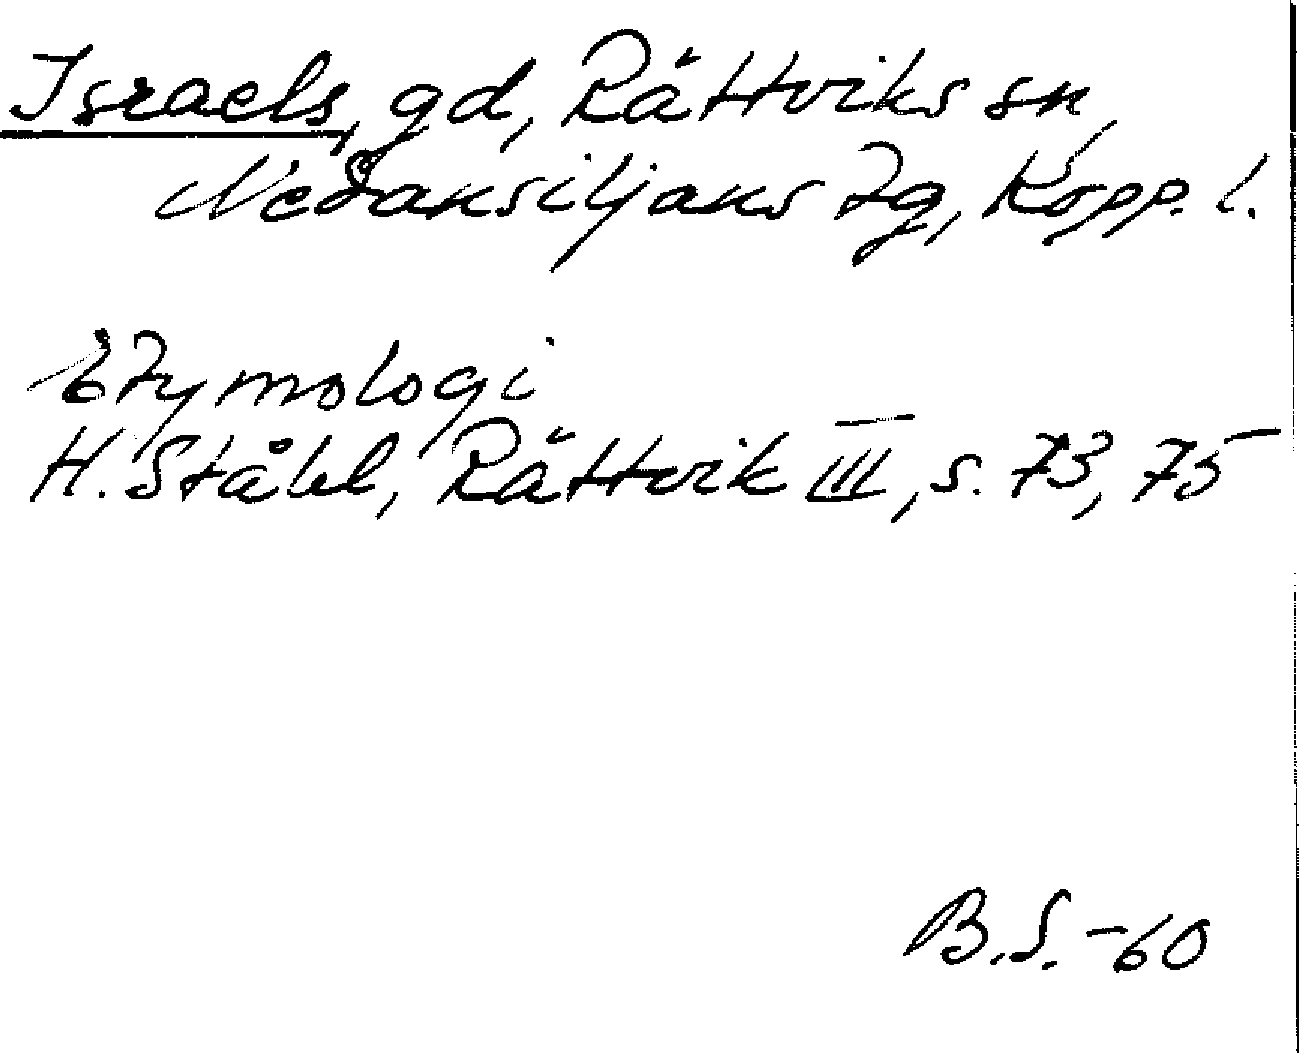 Israels, gd, Rättviks sn,
Nedansiljans tg, Kopp. l.
Etymologi
H. Ståhl, Rättvik III, s. 73, 75
B.S. -60